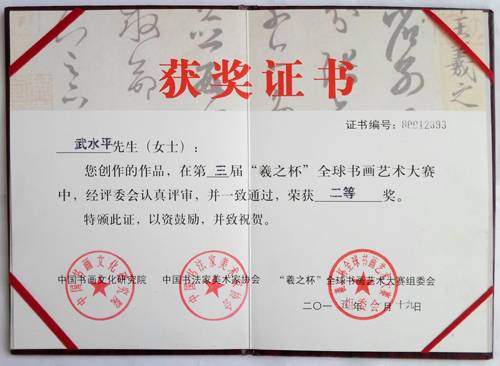 王羲之
获奖证书
证书编号：80012393
武水平先生（女士）：
您创作的作品，在第三届“羲之杯”全球书画艺术大赛
中，经评委会认真评审，并一致通过，荣获二等奖。
特颁此证，以资鼓励，并致祝贺。
中国书画文化研究院 中国书法家美术家协会 “羲之杯”全球书画艺术大赛组委会
二〇一五年 月十九日